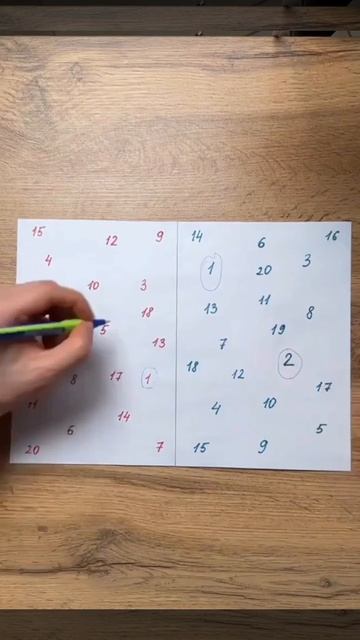 15 12 9
4
10 3
18
5
13
8 17 1
11
14
6
20 7
14 6 16
1 20 3
13 11 8
19
7
18 12 2 17
4 10
5
15 9